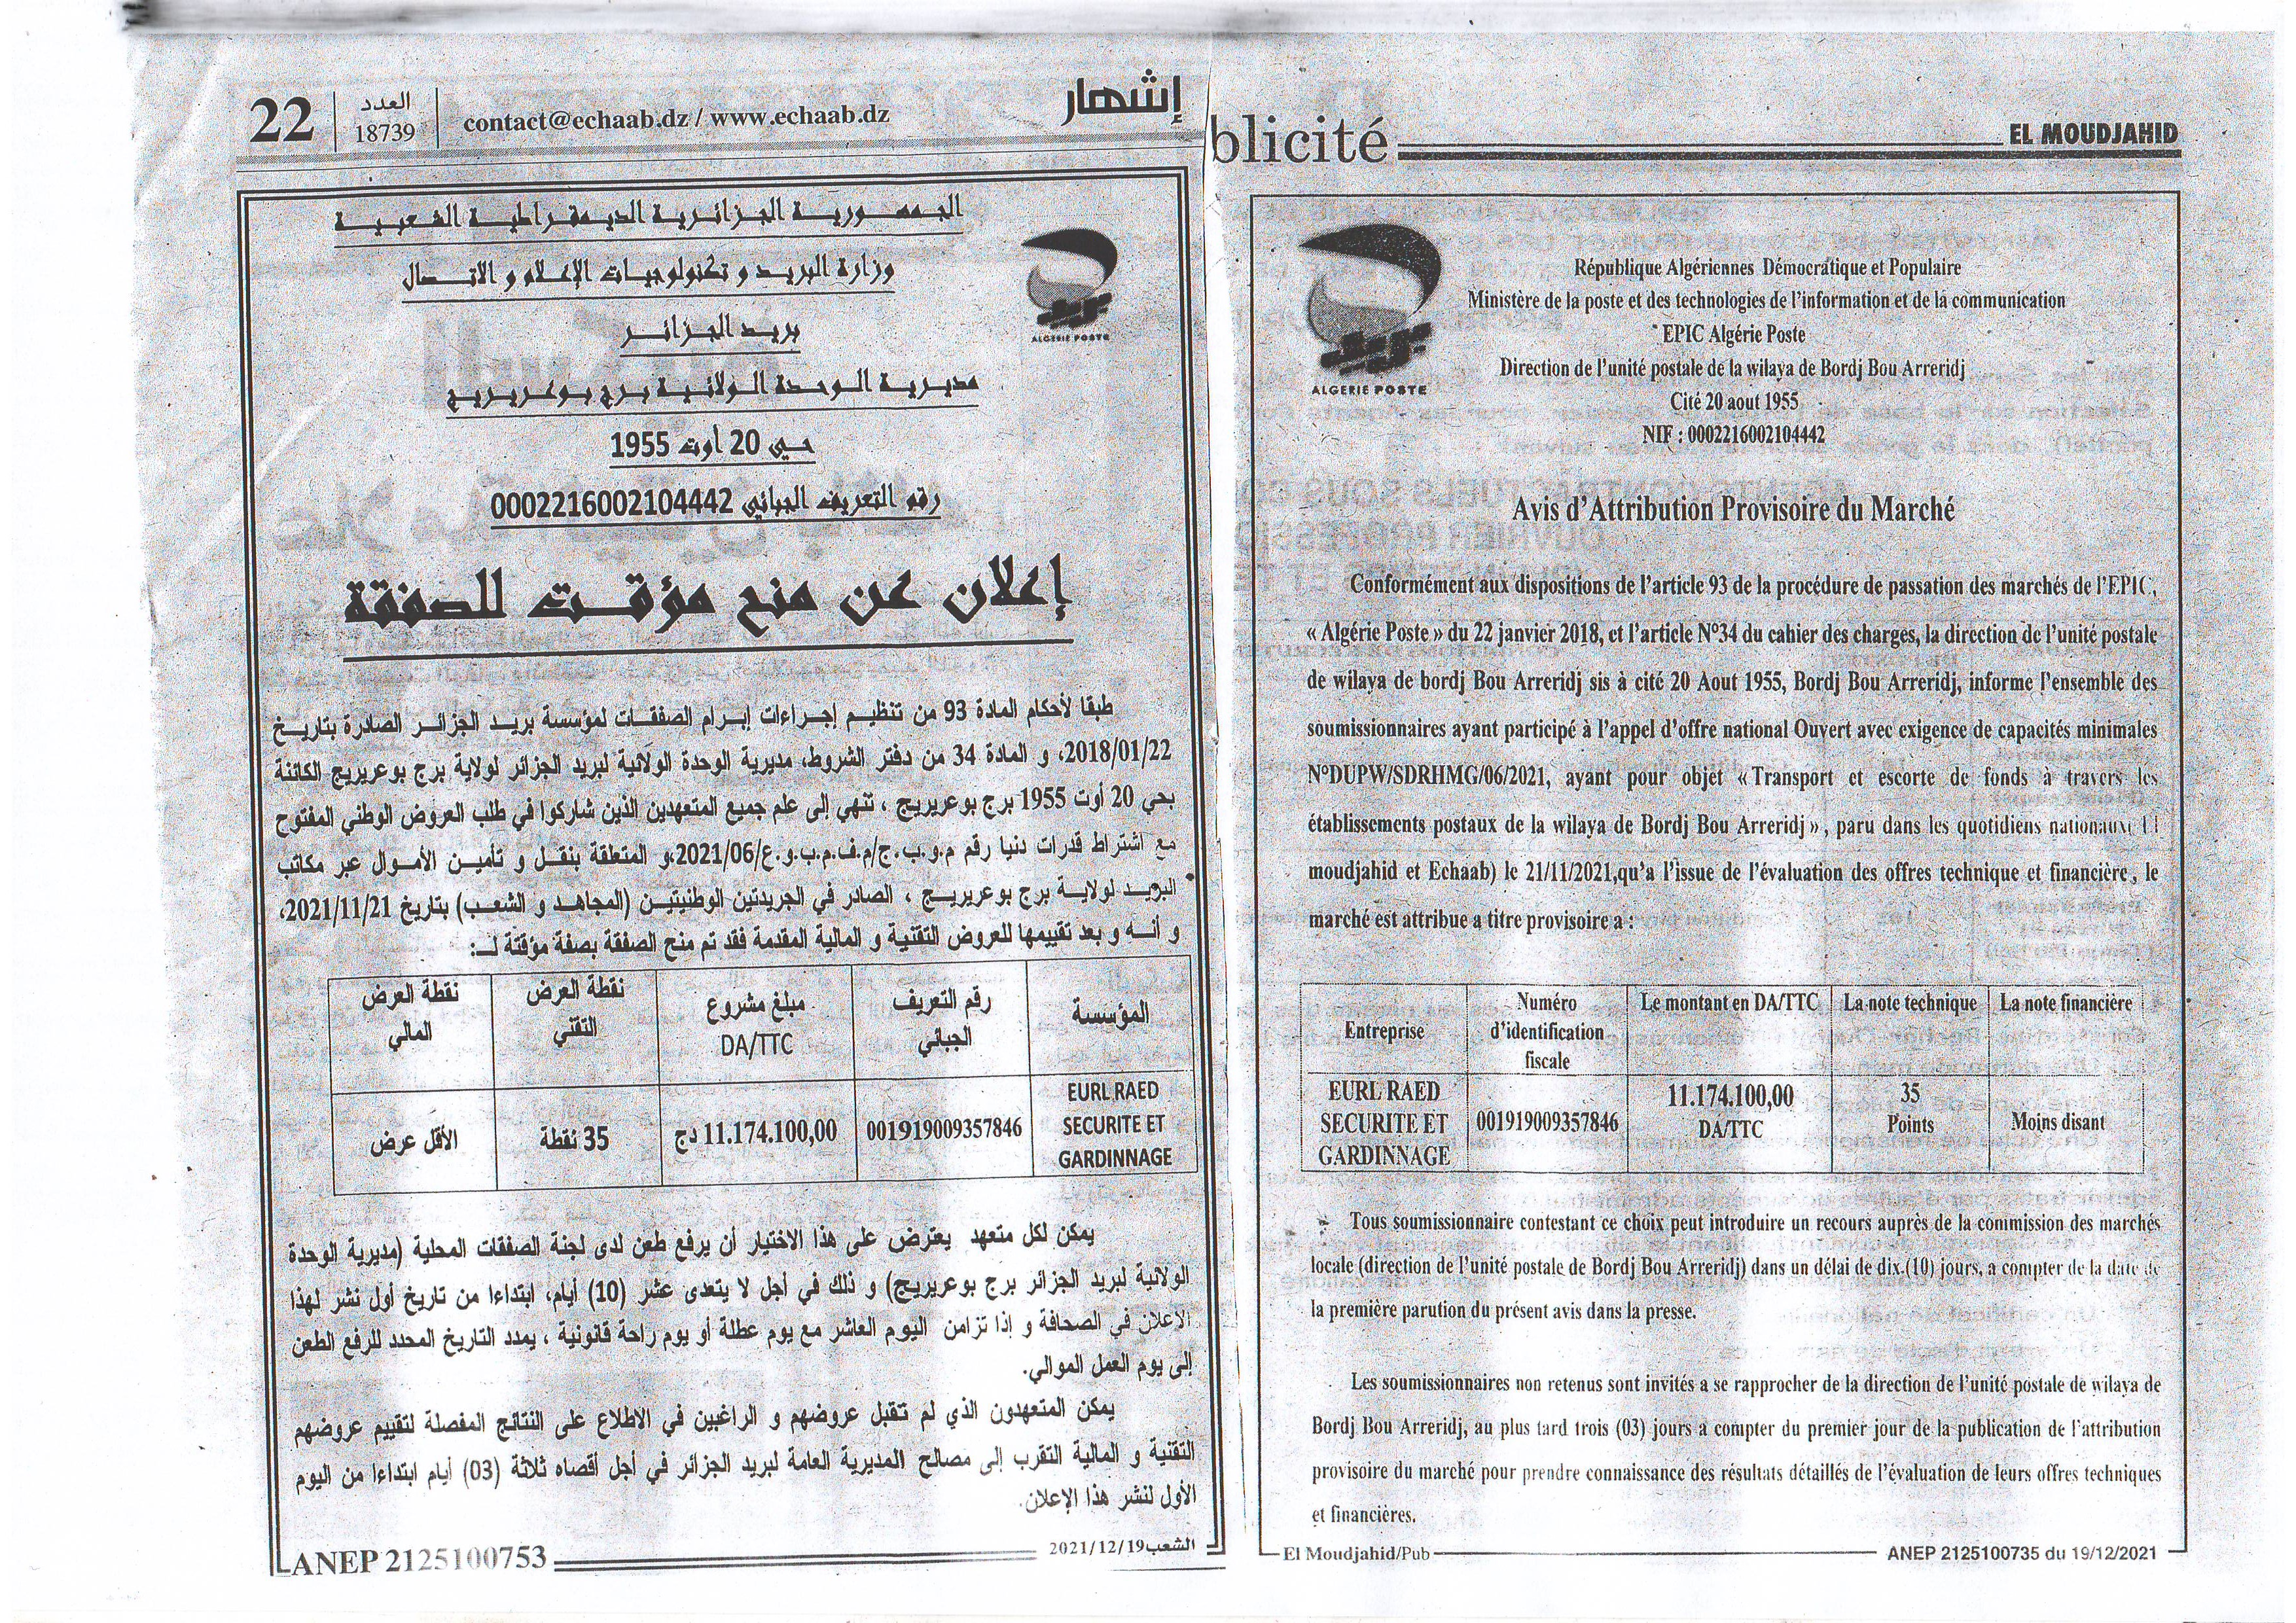 22
العدد
18739
contact@echaab.dz / www.echaab.dz
إشهار
الجمهورية الجزائرية الديمقراطية الشعبية
وزارة البريد و تكنولوجيات الإعلام و الاتصال
بريد الجزائر
مديرية الوحدة الولائية برج بوعريريج
حي 20 أوت 1955
رقم التعريف الجبائي 0002216002104442
ALGERIE POSTE
إعلان عن منح مؤقت للصفقة
طبقا لأحكام المادة 93 من تنظيم إجراءات إبرام الصفقات لمؤسسة بريد الجزائر الصادرة بتاريخ
2018/01/22، و المادة 34 من دفتر الشروط، مديرية الوحدة الولائية لبريد الجزائر لولاية برج بوعريريج الكائنة
بحي 20 أوت 1955 برج بوعريريج ، تنهي إلى علم جميع المتعهدين الذين شاركوا في طلب العروض الوطني المفتوح
مع اشتراط قدرات دنيا رقم م.و.ب.ج/م.ف.م.ب.و.ع/2021/06،و المتعلقة بنقل و تأمين الأموال عبر مكاتب
البريد لولاية برج بوعريريج ، الصادر في الجريدتين الوطنيتين (المجاهد و الشعب) بتاريخ 2021/11/21،
و أنه و بعد تقييمها للعروض التقنية و المالية المقدمة فقد تم منح الصفقة بصفة مؤقتة لـ:
المؤسسة
رقم التعريف
الجبائي
مبلغ مشروع
DA/TTC
نقطة العرض
التقني
نقطة العرض
المالي
EURL RAED
SECURITE ET
GARDINNAGE
001919009357846
11.174.100,00 دج
35 نقطة
الأقل عرض
يمكن لكل متعهد يعترض على هذا الاختيار أن يرفع طعن لدى لجنة الصفقات المحلية (مديرية الوحدة
الولائية لبريد الجزائر برج بوعريريج) و ذلك في أجل لا يتعدى عشر (10) أيام، ابتداءا من تاريخ أول نشر لهذا
الإعلان في الصحافة و إذا تزامن اليوم العاشر مع يوم عطلة أو يوم راحة قانونية ، يمدد التاريخ المحدد للرفع الطعن
إلى يوم العمل الموالي.
يمكن المتعهدون الذي لم تقبل عروضهم و الراغبين في الاطلاع على النتائج المفصلة لتقييم عروضهم
التقنية و المالية التقرب إلى مصالح المديرية العامة لبريد الجزائر في أجل أقصاه ثلاثة (03) أيام ابتداءا من اليوم
الأول لنشر هذا الإعلان.
ANEP 2125100753
الشعب 2021/12/19
blicité
EL MOUDJAHID
ALGERIE POSTE
République Algériennes Démocratique et Populaire
Ministère de la poste et des technologies de l'information et de la communication
EPIC Algérie Poste
Direction de l'unité postale de la wilaya de Bordj Bou Arreridj
Cité 20 aout 1955
NIF : 0002216002104442
Avis d'Attribution Provisoire du Marché
Conformément aux dispositions de l'article 93 de la procédure de passation des marchés de l'EPIC,
« Algérie Poste » du 22 janvier 2018, et l'article N°34 du cahier des charges, la direction de l'unité postale
de wilaya de bordj Bou Arreridj sis à cité 20 Aout 1955, Bordj Bou Arreridj, informe l'ensemble des
soumissionnaires ayant participé à l'appel d'offre national Ouvert avec exigence de capacités minimales
N°DUPW/SDRHMG/06/2021, ayant pour objet « Transport et escorte de fonds à travers les
établissements postaux de la wilaya de Bordj Bou Arreridj », paru dans les quotidiens nationaux( El
moudjahid et Echaab) le 21/11/2021,qu'a l'issue de l'évaluation des offres technique et financière, le
marché est attribue a titre provisoire a :
Entreprise
Numéro
d'identification
fiscale
Le montant en DA/TTC
La note technique
La note financière
EURL RAED
SECURITE ET
GARDINNAGE
001919009357846
11.174.100,00
DA/TTC
35
Points
Moins disant
Tous soumissionnaire contestant ce choix peut introduire un recours auprès de la commission des marchés
locale (direction de l'unité postale de Bordj Bou Arreridj) dans un délai de dix.(10) jours, a compter de la date de
la première parution du présent avis dans la presse.
Les soumissionnaires non retenus sont invités a se rapprocher de la direction de l'unité postale de wilaya de
Bordj Bou Arreridj, au plus tard trois (03) jours a compter du premier jour de la publication de l'attribution
provisoire du marché pour prendre connaissance des résultats détaillés de l'évaluation de leurs offres techniques
et financières.
El Moudjahid/Pub
ANEP 2125100735 du 19/12/2021